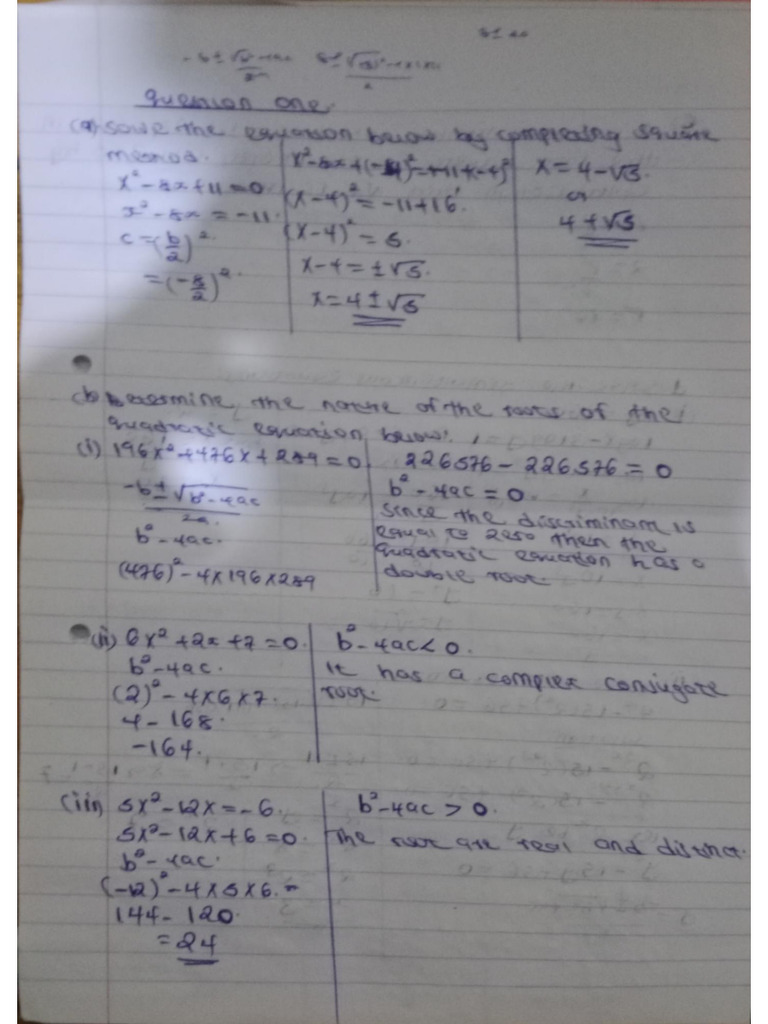 Question One.
(a) Solve the equation below by completing square
method.
x² - 8x + 11 = 0
x² - 8x = -11
c = (b/2)²
= (-8/2)²
x² - 8x + (-4)² = -11 + (-4)²
(x - 4)² = -11 + 16
(x - 4)² = 5.
x - 4 = ±√5.
x = 4 ± √5
x = 4 - √5
or
4 + √5
(b) Determine the nature of the roots of the
quadratic equation below.
(i) 196x² + 476x + 289 = 0
-b ± √b² - 4ac
2a.
b² - 4ac.
(476)² - 4 x 196 x 289
226576 - 226576 = 0
b² - 4ac = 0.
Since the discriminant is
equal to zero then the
quadratic equation has a
double root.
(ii) 6x² + 2x + 7 = 0.
b² - 4ac.
(2)² - 4 x 6 x 7.
4 - 168.
-164.
b² - 4ac < 0.
It has a complex conjugate
root.
(iii) 5x² - 12x = -6.
5x² - 12x + 6 = 0.
b² - 4ac.
(-12)² - 4 x 5 x 6. =
144 - 120.
= 24
b² - 4ac > 0.
The root are real and distinct.